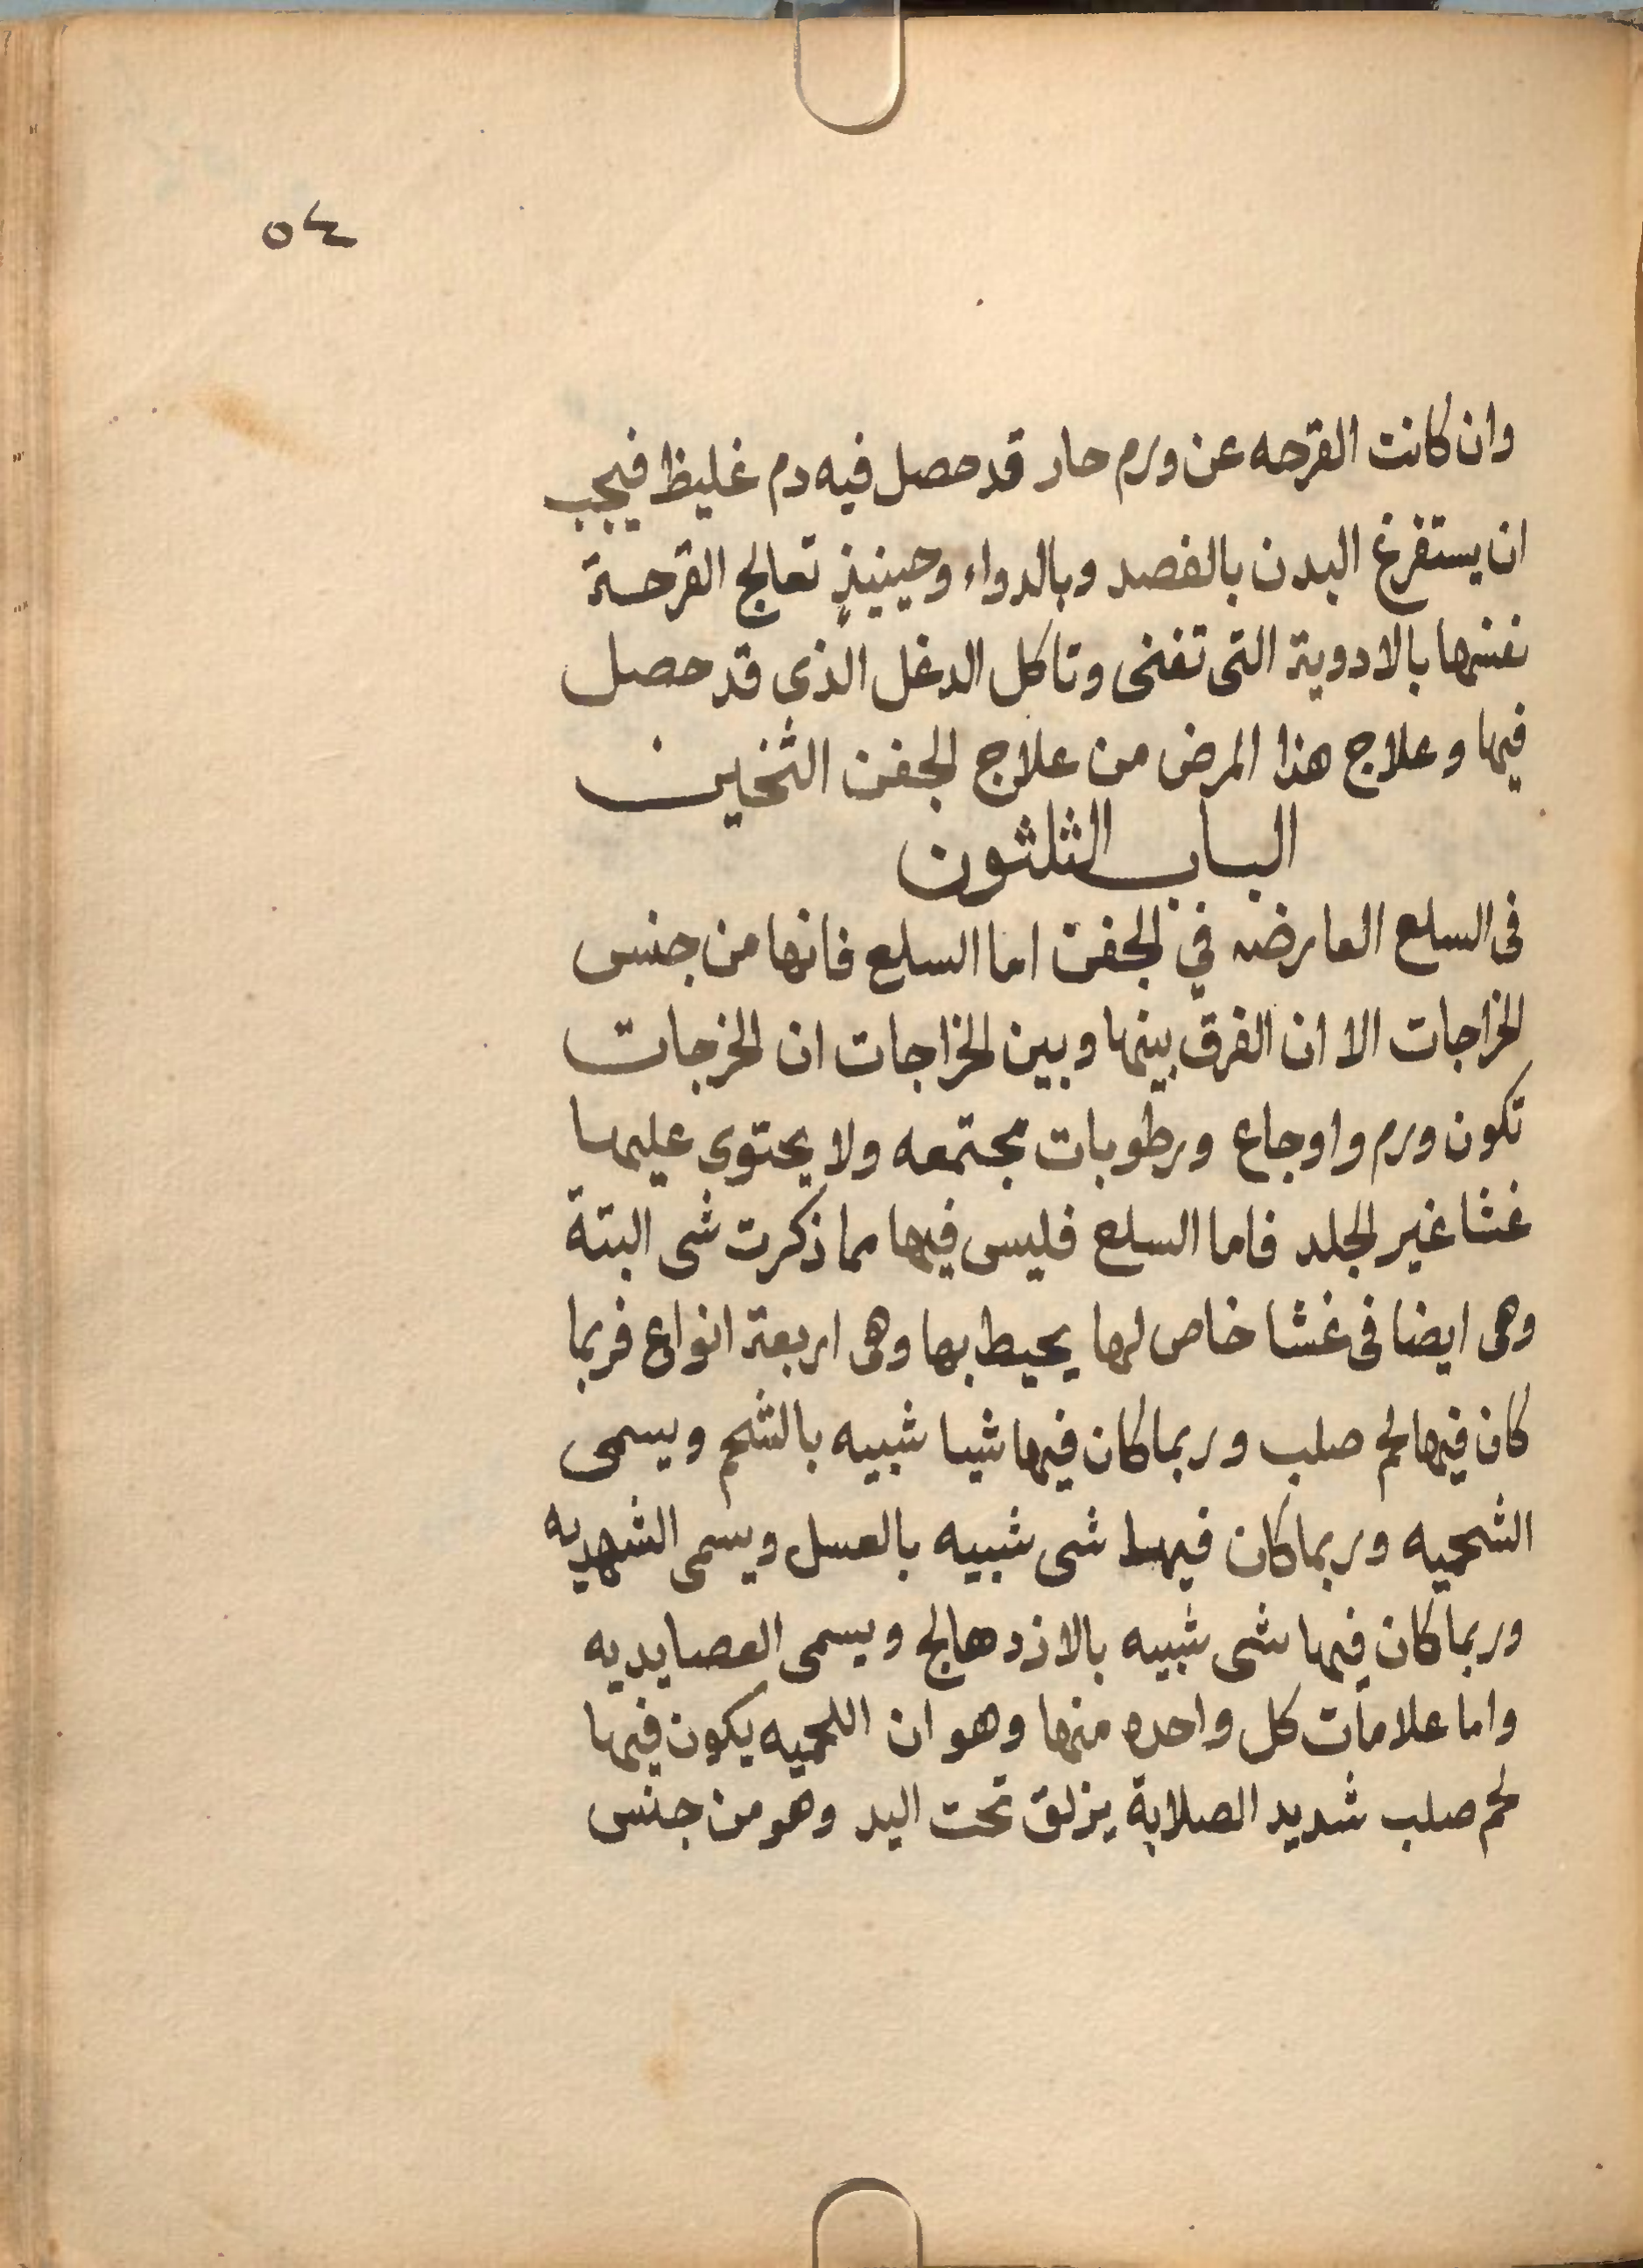 ٥٤
وان كانت القرحه عن ورم حار قد حصل فيه دم غليظ فيجب
ان يستفرغ البدن بالفصد وبالدواء وحينيذٍ تعالج القرحة
نفسها بالادوية التى تفنى وتاكل الدغل الذى قد حصل
فيها وعلاج هذا المرض من علاج الجفن الثخين
الباب الثلثون
فى السلع العارضه في الجفن اما السلع فانها من جنس
الخراجات الا ان الفرق بينها وبين الخراجات ان الخرجات
تكون ورم واوجاع ورطوبات مجتمعه ولا يحتوى عليها
غشا غير الجلد فاما السلع فليس فيها مما ذكرت شى البتة
وهى ايضا فى غشا خاص لها يحيط بها وهى اربعة انواع فربما
كان فيها لحم صلب وربما كان فيها شيا شبيه بالشحم ويسمى
الشحميه وربما كان فيها شى شبيه بالعسل ويسمى الشهديه
وربما كان فيها شى شبيه بالازدهالج ويسمى العصايديه
واما علامات كل واحده منها وهو ان اللحميه يكون فيها
لحم صلب شديد الصلابة يزلق تحت اليد وهو من جنس